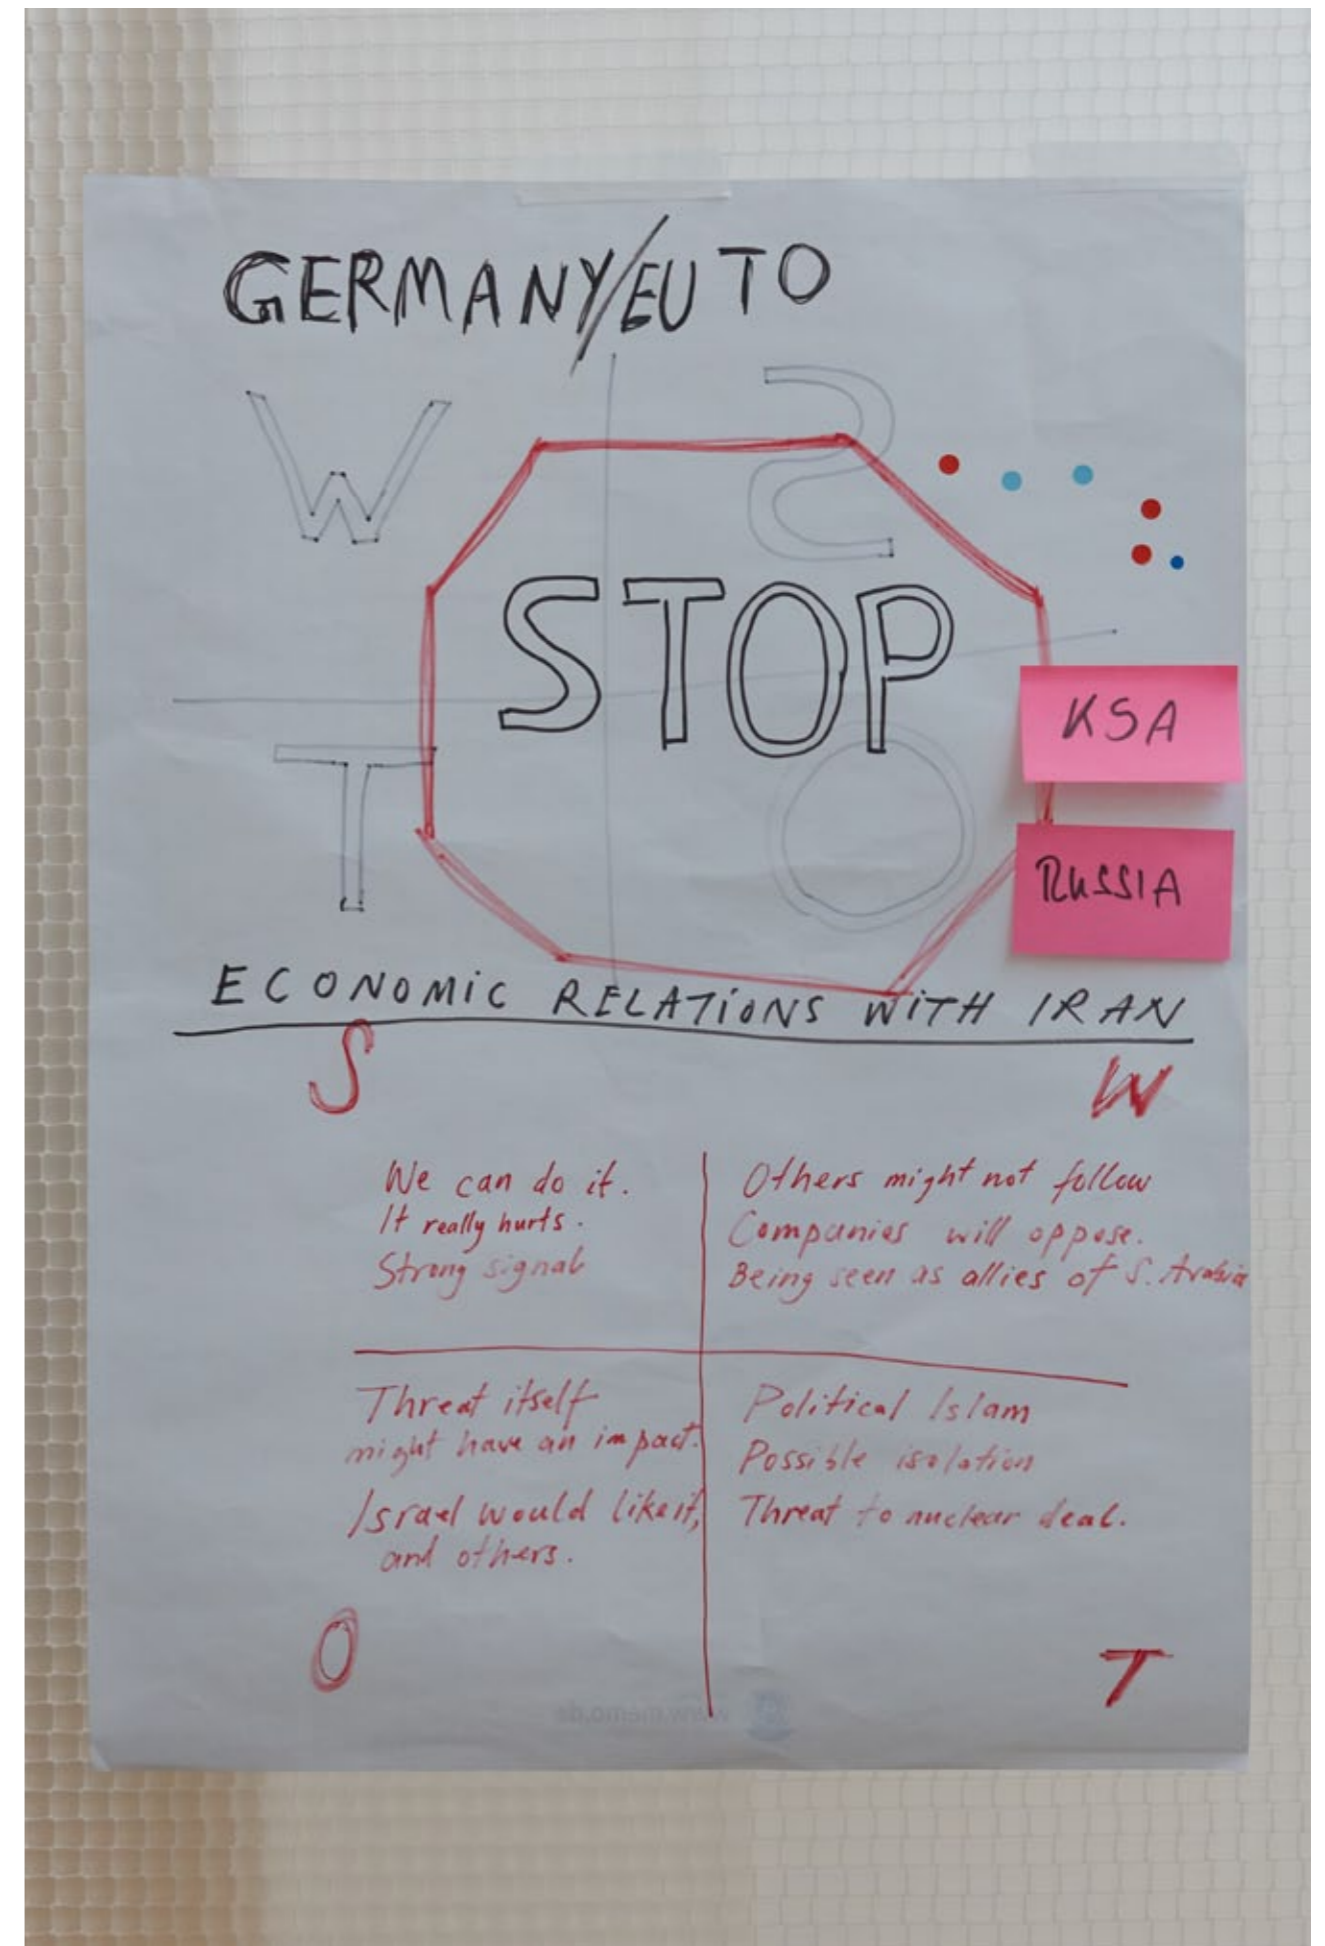 GERMANY/EU TO
W S
STOP
KSA
T O
RUSSIA
ECONOMIC RELATIONS WITH IRAN
S
W
We can do it.
It really hurts.
Strong signal
Others might not follow
Companies will oppose.
Being seen as allies of S. Arabia
Threat itself
might have an impact.
Israel would like it,
and others.
Political Islam
Possible isolation
Threat to nuclear deal.
O
T
www.memo.de